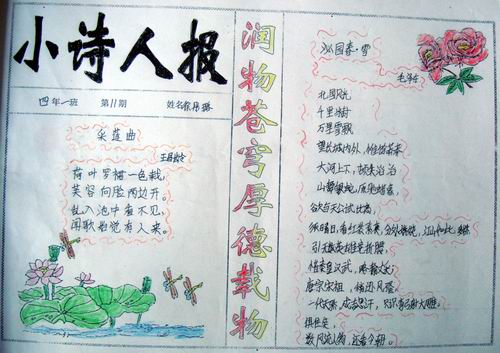 小诗人报
四年一班 第11期 姓名
采莲曲
王昌龄
荷叶罗裙一色栽,
芙蓉向脸两边开。
乱入池中看不见,
闻歌始觉有人来。
润物苍穹厚德载物
沁园春·雪
毛泽东
北国风光
千里冰封
万里雪飘
望长城内外,
大河上下,顿失滔滔
山舞银蛇,原驰蜡象,
欲与天公试比高,
须晴日,看红装素裹,分外妖娆,江山如此
引无数英雄竞折腰
惜秦皇汉武,略输文采
唐宗宋祖,稍逊风骚
一代天骄,成吉思汗,只识弯弓射大雕
俱往矣,
数风流人物,还看今朝。